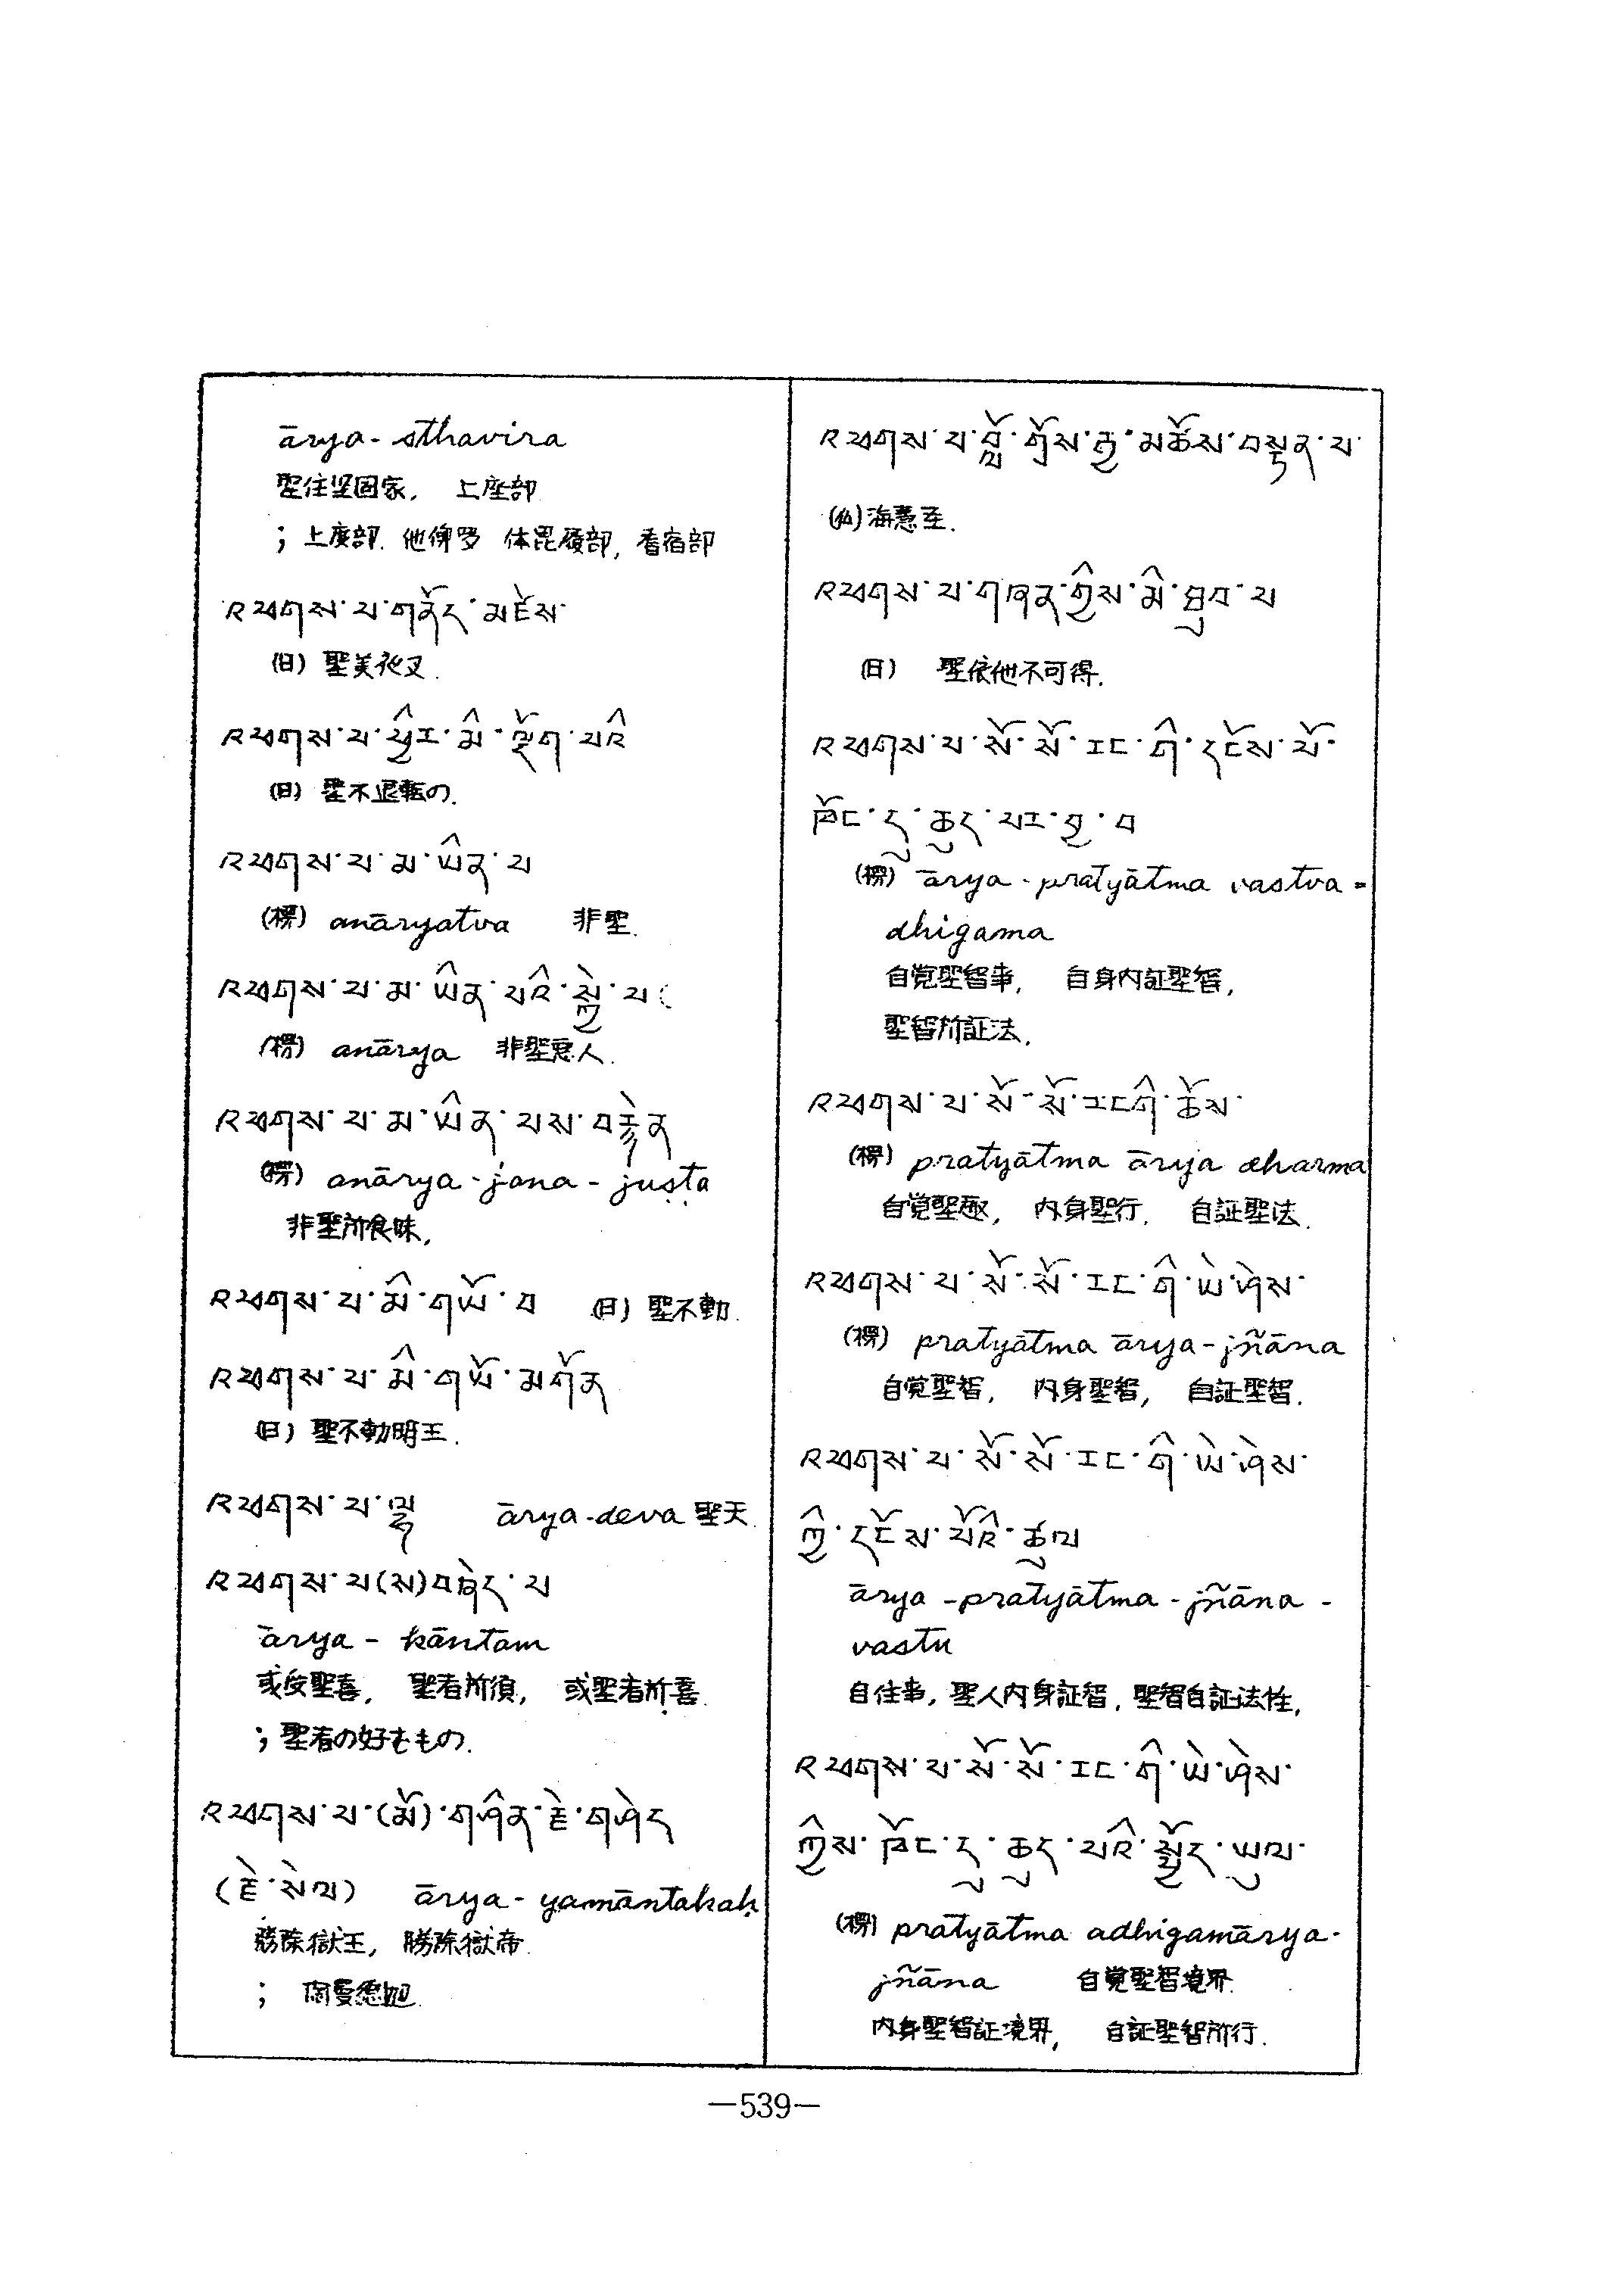 ārya-sthavira
聖住坚固家, 上座部
; 上座部. 他俾罗 体毘履部, 耆宿部
འཕགས་པ་གནོད་མཛེས་
(日) 聖美夜叉.
འཕགས་པ་ཕྱིར་མི་ལྡོག་པའི
(日) 聖不退転の.
འཕགས་པ་མ་ཡིན་པ
(楞) anāryatva 非聖.
འཕགས་པ་མ་ཡིན་པའི་སྐྱེ་པ
(楞) anārya 非聖悪人.
འཕགས་པ་མ་ཡིན་པས་བརྟེན
(楞) anārya-jana-juṣṭa
非聖所食味,
འཕགས་པ་མི་གཡོ་བ (日) 聖不動.
འཕགས་པ་མི་གཡོ་མགོན
(日) 聖不動明王.
འཕགས་པ་ལྷ ārya-deva 聖天.
འཕགས་པ(ས)བཞེད་པ
ārya-kāntam
或皮聖喜, 聖者所須, 或聖者所喜.
; 聖者の好むもの.
འཕགས་པ་(མོ)་གཤིན་རྗེ་གཤེད
(རྗེ་སེལ) ārya-yamāntakaḥ
勝除獄王, 勝除獄帝.
འཕགས་པ་བློ་གྲོས་རྒྱ་མཚོས་བསྟན་པ་
海慧至.
འཕགས་པ་གཞན་གྱིས་མི་ཐུབ་པ
(日) 聖依他不可得.
འཕགས་པ་སོ་སོ་རང་གི་དངོས་པོ་
ཁོང་དུ་ཆུད་པར་བྱ་བ
(楞) ārya-pratyātma vastva=
dhigama
自覚聖智事, 自身内証聖智,
聖智所証法.
འཕགས་པ་སོ་སོ་རང་གི་ཆོས་
(楞) pratyātma ārya dharma
自覚聖趣, 内身聖行. 自証聖法.
འཕགས་པ་སོ་སོ་རང་གི་ཡེ་ཤེས་
(楞) pratyātma ārya-jñāna
自覚聖智, 内身聖智, 自証聖智.
འཕགས་པ་སོ་སོ་རང་གི་ཡེ་ཤེས་
ཀྱི་དངོས་པོའི་ཚུལ
ārya-pratyātma-jñāna-
vastu
自住事, 聖人内身証智, 聖智自証法性,
འཕགས་པ་སོ་སོ་རང་གི་ཡེ་ཤེས་
ཀྱིས་ཁོང་དུ་ཆུད་པའི་སྤྱོད་ཡུལ་
(楞) pratyātma adhigamārya-
jñāna 自覚聖智境界.
内身聖智証境界, 自証聖智所行.
—539—